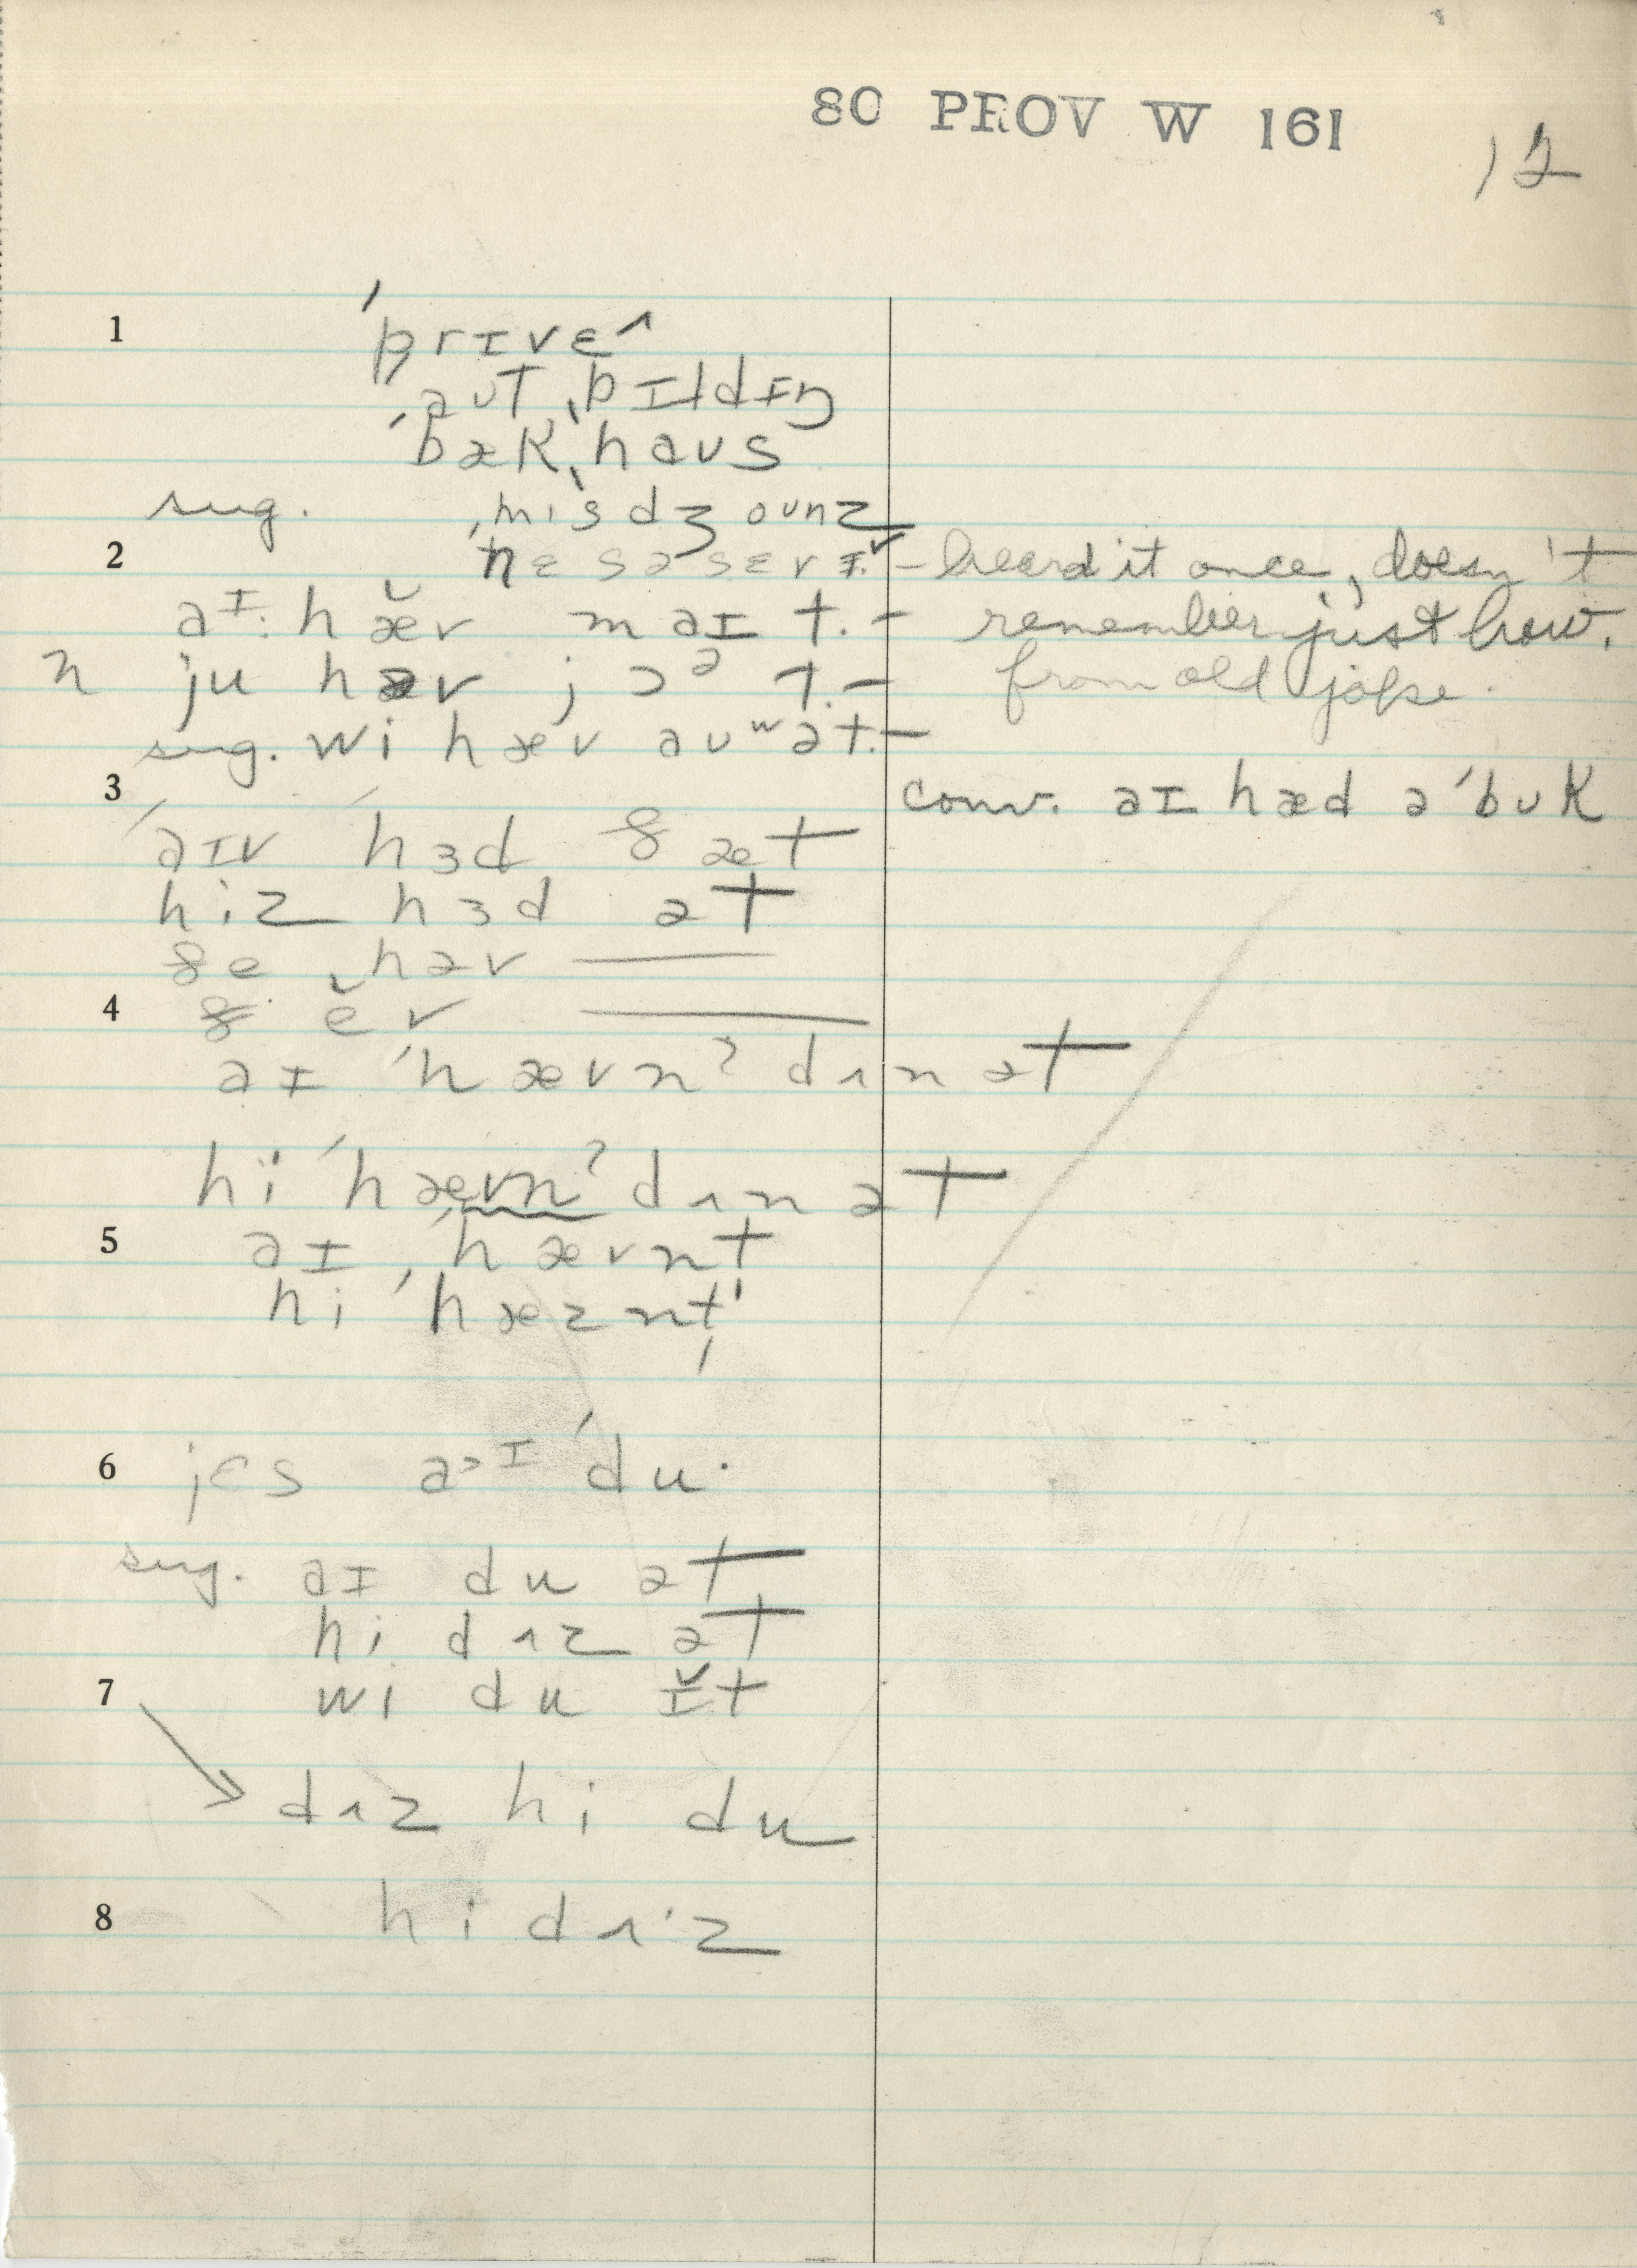 80 PROV W 161
12
1 ˈprɪvɛ^
ˈaʊt ˌbɪldɪŋ
ˈbækˌhaʊs
sug. ˌmɪsdʒounz
2 nɛsəsɛrɪ̆ – heard it once, doesn't
aɪ· hæ̆v maɪ t. – remember just how.
n ju hæv jɔᵊ t. – from old joke.
sug. wi hæv aʊʷət. –
3 conv. aɪ hæd ə ˈbʊk
ˈaɪv ˈhɜd ðæt
hiz hɜd ət
ðe ˌhəv ——
4 ðĕv ——
aɪ ˈhævnˀ dʌn ət
hi ˈhævnˀ dʌn ət
5 aɪ ˈhævnt
hi ˈhæznt
6 jɛs a>ɪ ˈdu·
sug. aɪ du ət
hi dʌz ət
7 wi du ɪ̆t
→ dʌz hi du
8 hi dʌ·z